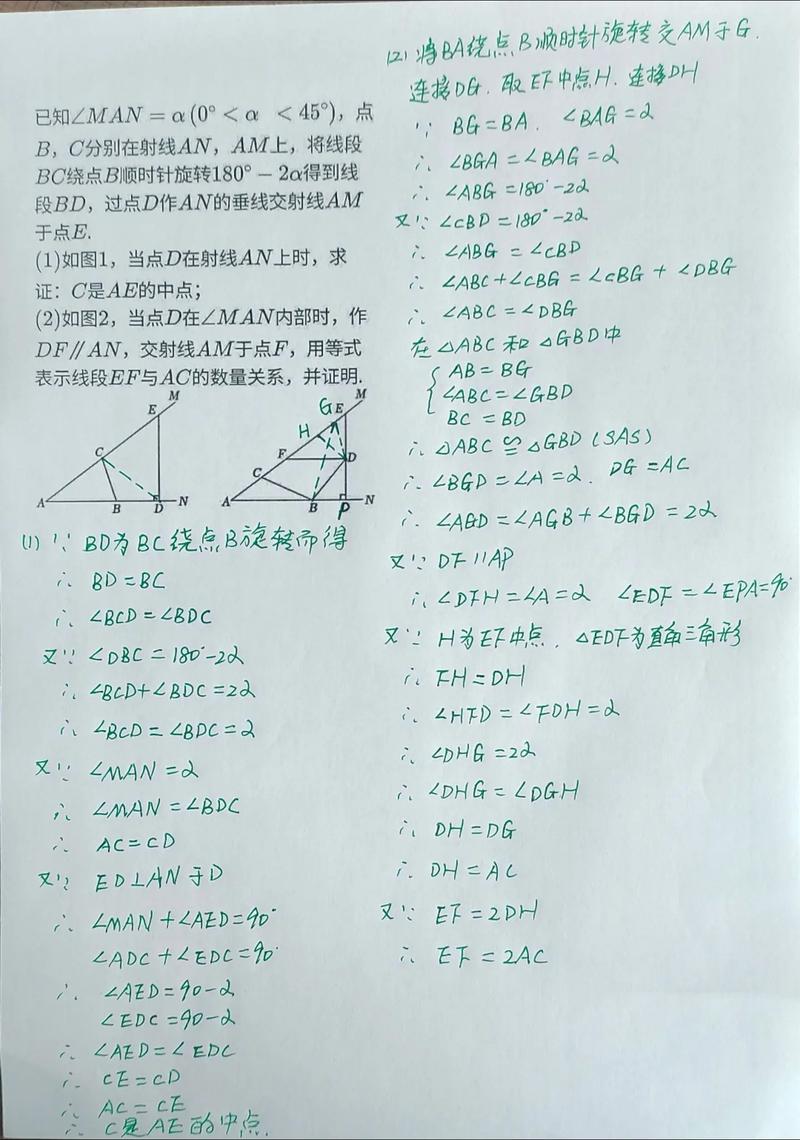 已知∠MAN=α(0°<α <45°)，点
B，C分别在射线AN，AM上，将线段
BC绕点B顺时针旋转180°−2α得到线
段BD，过点D作AN的垂线交射线AM
于点E.
(1)如图1，当点D在射线AN上时，求
证：C是AE的中点；
(2)如图2，当点D在∠MAN内部时，作
DF∥AN，交射线AM于点F，用等式
表示线段EF与AC的数量关系，并证明.
M
E
C
A B D N
G E M
H
F D
C
A B P N
(1) ∵ BD为BC绕点B旋转而得
∴ BD=BC
∴ ∠BCD=∠BDC
又∵ ∠DBC=180°-2α
∴ ∠BCD+∠BDC=2α
∴ ∠BCD=∠BDC=α
又∵ ∠MAN=α
∴ ∠MAN=∠BDC
∴ AC=CD
又∵ ED⊥AN于D
∴ ∠MAN+∠AED=90°
∠ADC+∠EDC=90°
∴ ∠AED=90-α
∠EDC=90-α
∴ ∠AED=∠EDC
∴ CE=CD
∴ AC=CE
∴ C是AE的中点.
(2) 将BA绕点B顺时针旋转交AM于G.
连接DG. 取EF中点H. 连接DH
∵ BG=BA. ∠BAG=α
∴ ∠BGA=∠BAG=α
∴ ∠ABG=180°-2α
又∵ ∠CBD=180°-2α
∴ ∠ABG=∠CBD
∴ ∠ABC+∠CBG=∠CBG+∠DBG
∴ ∠ABC=∠DBG
在△ABC和△GBD中
AB=BG
∠ABC=∠GBD
BC=BD
∴ △ABC≌△GBD(SAS)
∴ ∠BGD=∠A=α. DG=AC
∴ ∠AGD=∠AGB+∠BGD=2α
又∵ DF∥AP
∴ ∠DFH=∠A=α ∠EDF=∠EPA=90°
又∵ H为EF中点. △EDF为直角三角形
∴ FH=DH
∴ ∠HFD=∠FDH=α
∴ ∠DHG=2α
∴ ∠DHG=∠DGH
∴ DH=DG
∴ DH=AC
又∵ EF=2DH
∴ EF=2AC